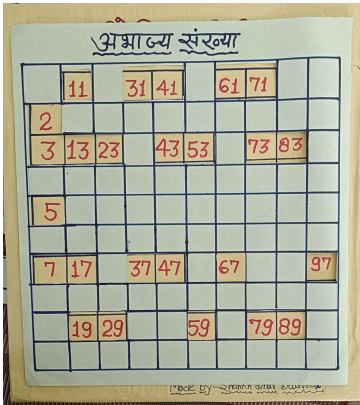 अभाज्य संख्या
11 31 41 61 71
2
3 13 23 43 53 73 83
5
7 17 37 47 67 97
19 29 59 79 89
Made by-